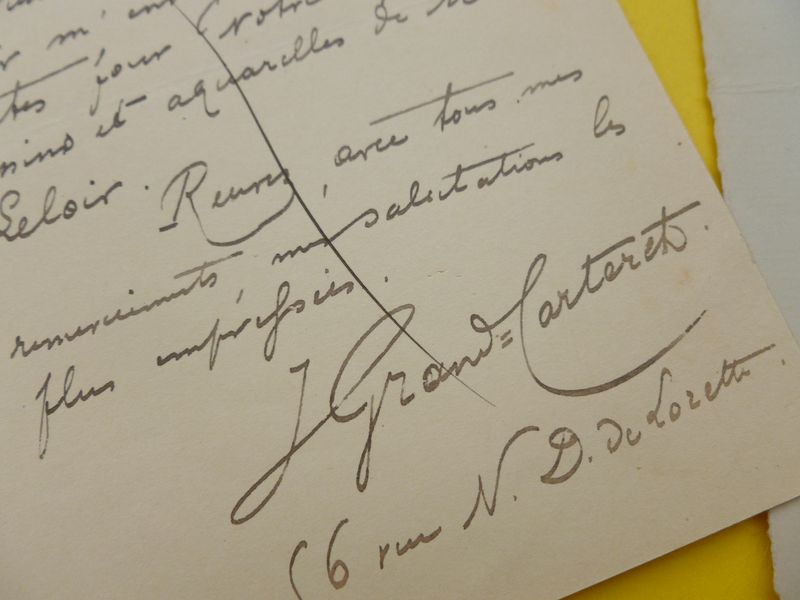 r m'
tes pour Votre
mino et aquarelles de
Leloir. Recevez, avec tous mes
remerciements, mes salutations les
plus empressées.
J Grand=Carteret.
66 rue N. D. de Lorette.